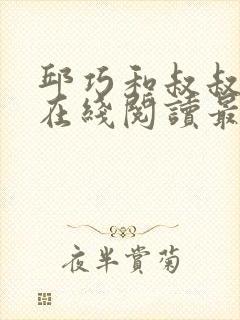 邱巧和叔叔
在綫閱讀最
夜半賞菊